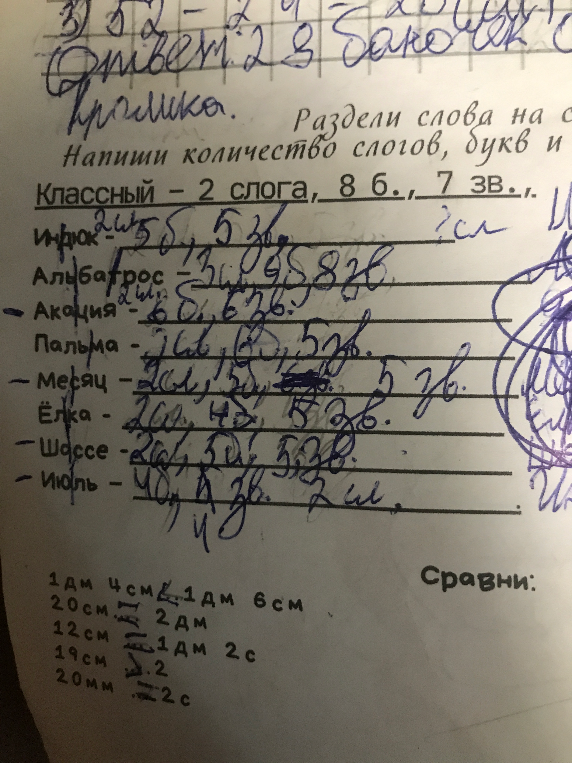 3) 52 - 24 =
Ответ: 28 баночек
кролика.
Раздели слова на с
Напиши количество слогов, букв и
Классный – 2 слога, 8 б., 7 зв.,.
Индюк - 2сл. 5б, 5 зв. ?сл
Альбатрос – 3сл, 9б 8зв.
- Акация - 6б, 6зв.
Пальма - 2сл, 6б, 5зв.
- Месяц - 2сл, 5б, 5 зв.
Ёлка - 2сл, 4б, 5 зв.
- Шоссе - 2сл, 5б, 5,зв.
- Июль - 4б, 5 зв. 2 сл.
4
Сравни:
1дм 4см < 1дм 6см
20см = 2дм
12см = 1дм 2с
19см 2
20мм = 2с